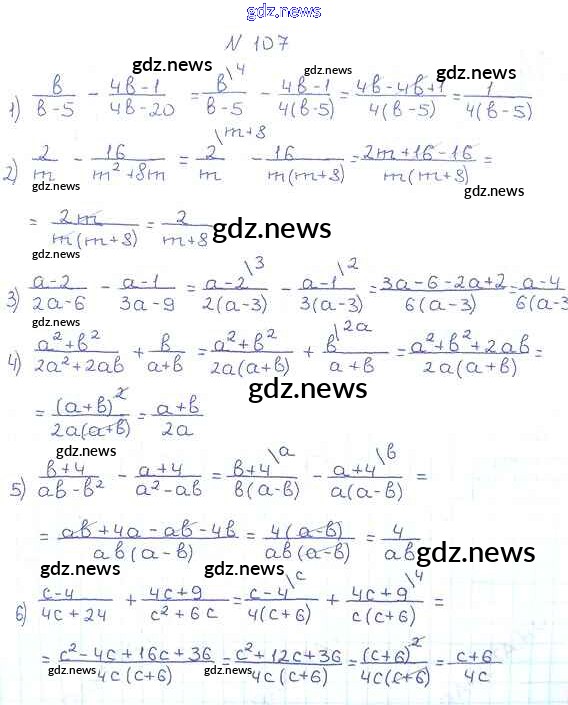 gdz.news
N 107
gdz.news gdz.news gdz.news
1) в/(в-5) - (4в-1)/(4в-20) = в\4/(в-5) - (4в-1)/(4(в-5)) = (4в-4в+1)/(4(в-5)) = 1/(4(в-5))
gdz.news
2) 2/m - 16/(m²+8m) = 2\m+8/m - 16/(m(m+8)) = (2m+16-16)/(m(m+8)) =
gdz.news gdz.news
= 2m/(m(m+8)) = 2/(m+8)
gdz.news
gdz.news
3) (a-2)/(2a-6) - (a-1)/(3a-9) = (a-2)\3/(2(a-3)) - (a-1)\2/(3(a-3)) = (3a-6-2a+2)/(6(a-3)) = (a-4)/(6(a-3
gdz.news
4) (a²+в²)/(2a²+2aв) + в/(a+в) = (a²+в²)/(2a(a+в)) + в\2a/(a+в) = (a²+в²+2aв)/(2a(a+в)) =
gdz.news
= (a+в)²/(2a(a+в)) = (a+в)/2a
gdz.news
5) (в+4)/(aв-в²) - (a+4)/(a²-aв) = (в+4)\a/(в(a-в)) - (a+4)\в/(a(a-в)) =
= (aв+4a-aв-4в)/(aв(a-в)) = 4(a-в)/(aв(a-в)) = 4/aв
gdz.news
gdz.news gdz.news gdz.news
6) (c-4)/(4c+24) + (4c+9)/(c²+6c) = (c-4)\c/(4(c+6)) + (4c+9)\4/(c(c+6)) =
= (c²-4c+16c+36)/(4c(c+6)) = (c²+12c+36)/(4c(c+6)) = (c+6)²/(4c(c+6)) = (c+6)/4c